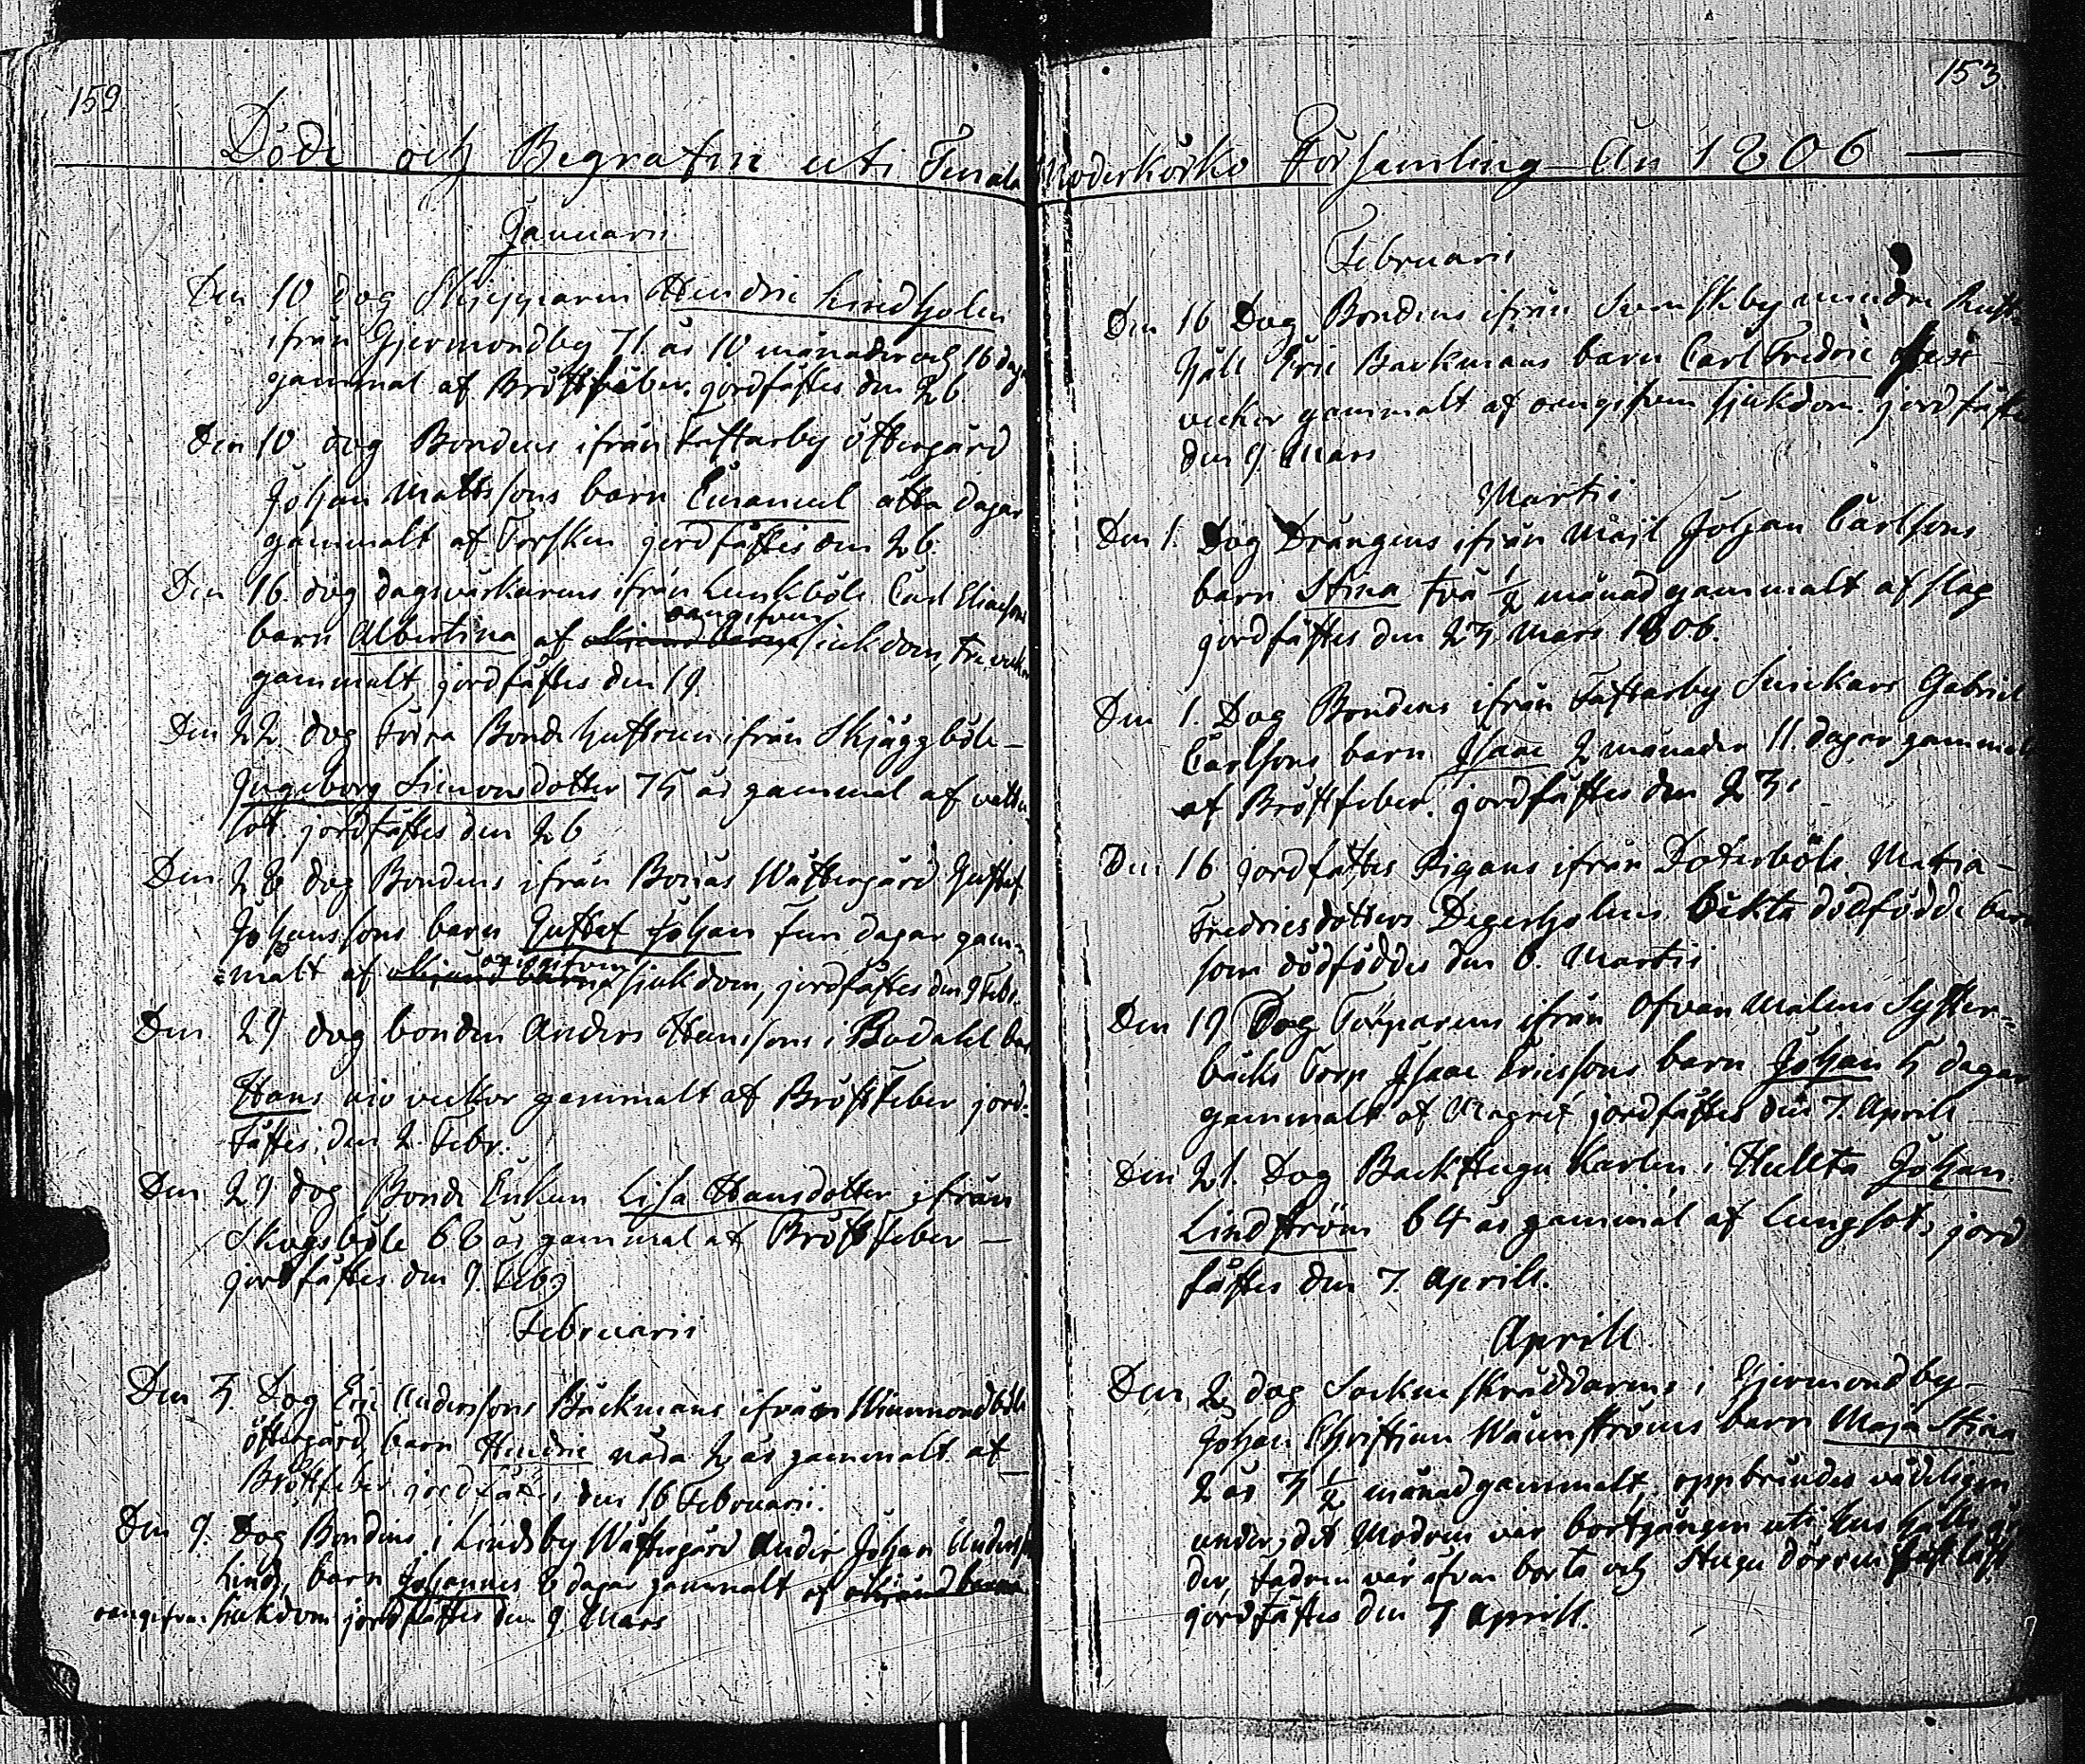 159
Döde och Begrafne uti Tenala
Januarii
Den 10 dog Skepparen Hendric Lindholm
ifrån Gjermondby 71 år 10 månader och 16 dagar
gammal af Bröstfeber. jordfästes den 26
Den 10 dog Bondens ifrån Trästarby östergård
Johan Mattssons barn Emanuel åtta dagar
gammalt af Torsken jordfästes den 26
Den 16. dog dagsvärkarens ifrån Lunkböle Carl Eliaesons
oangifven
barn Albertina af okiänd barna sjukdom, tre veckor
gammalt jordfästes den 19
Den 22 dog Förra Bonde hustrun ifrån Skjäggböle –
Ingeborg Simonsdotter 75 år gammal af vattu
sot. jordfästes den 26
Den 28 dog Bondens ifrån Bonäs Wästergård Gustaf
Johanssons barn Gustaf Johan fem dagar gam-
oangifven
malt af okiänd barna sjukdom, jordfästes den 9 Febr.
Den 29 dog bonden Anders Hanssons i Bodahl barn
Hans nio veckor gammalt af Bröstfeber jord-
fästes den 2 Febr.
Den 29 dog Bonde Enkan Lisa Hansdotter ifrån
Skogsböle 68 år gammal af Bröstfeber –
jordfästes den 9. Febr
Februarii
Den 3. Dog Eric Anderssons Bäckmans ifrån Kimmondböle
östergård, barn Hendric nära 2 år gammalt af –
Bröstfeber jordfästes den 16 Februarii.
Den 9. Dog Bondens i Lindsby Wästergård Anders Johan Anderss
Lind, barn Johannes 8 dagar gammalt af okiänd barna
oangifven sjukdom jordfästes den 9. Mars
153
Moderkörko Församling År 1806 –
Februarii
Den 16 Dog Bondens ifrån Svenskby mindre Rust-
håll Eric Backmans barn Carl Fredric sex
veckor gammalt af oangifven sjukdom. jordfästes
den 9 Mars
Martii
Den 1. Dog Drängens ifrån Johan Carlsons
barn Stina två ½ månad gammalt af slag
jordfästes den 23 Mars 1806.
Den 1. Dog Bondens ifrån Fästarby Snickars Gabriel
Carlsons barn Isaac 2 månader 11. dagar gammalt
af Bröstfeber. jordfästes den 23.
Den 16 jordfästes Pigans ifrån Doterböle Maria –
Fredricsdotters Degerholms oäkta dödfödde barn
som dödföddes den 6. Martii
Den 19 Dog Torparens ifrån Ofvan Malms Syster-
bäcks Torp Isaac Ericssons barn Johan 5 dagar
gammalt af Magref jordfästes den 7. Aprill
Den 21. Dog Backstugu Karlen i Hulta Johan
Lindström 64 år gammal af Lungsot, jord
fästes den 7. Aprill.
Aprill
Den 2 dog Sockne skräddarens i Gjermondby –
Johan Christian Wännströms barn Maja Stina
2 år 3 ½ månad gammalt, oppbrändes vådeligen
under det Modren var bortgången uti hus hålls är
der, fadren var äfven borta och Stugu dörren fast låst
jordfästes den 7 Aprill.